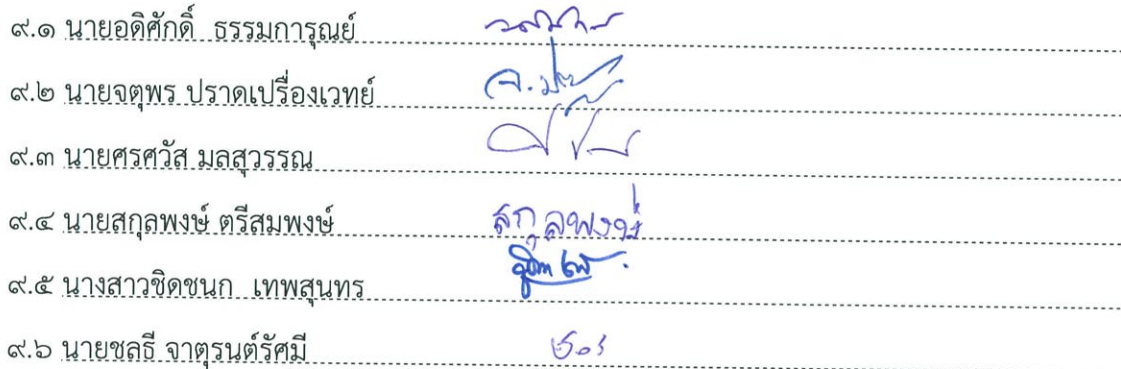 ๙.๑ นายอดิศักดิ์ ธรรมการุณย์
๙.๒ นายจตุพร ปราดเปรื่องเวทย์
๙.๓ นายศรศวัส มลสุวรรณ
๙.๔ นายสกุลพงษ์ ตรีสมพงษ์ สกุลพงษ์
๙.๕ นางสาวชิดชนก เทพสุนทร
๙.๖ นายชลธี จาตุรนต์รัศมี